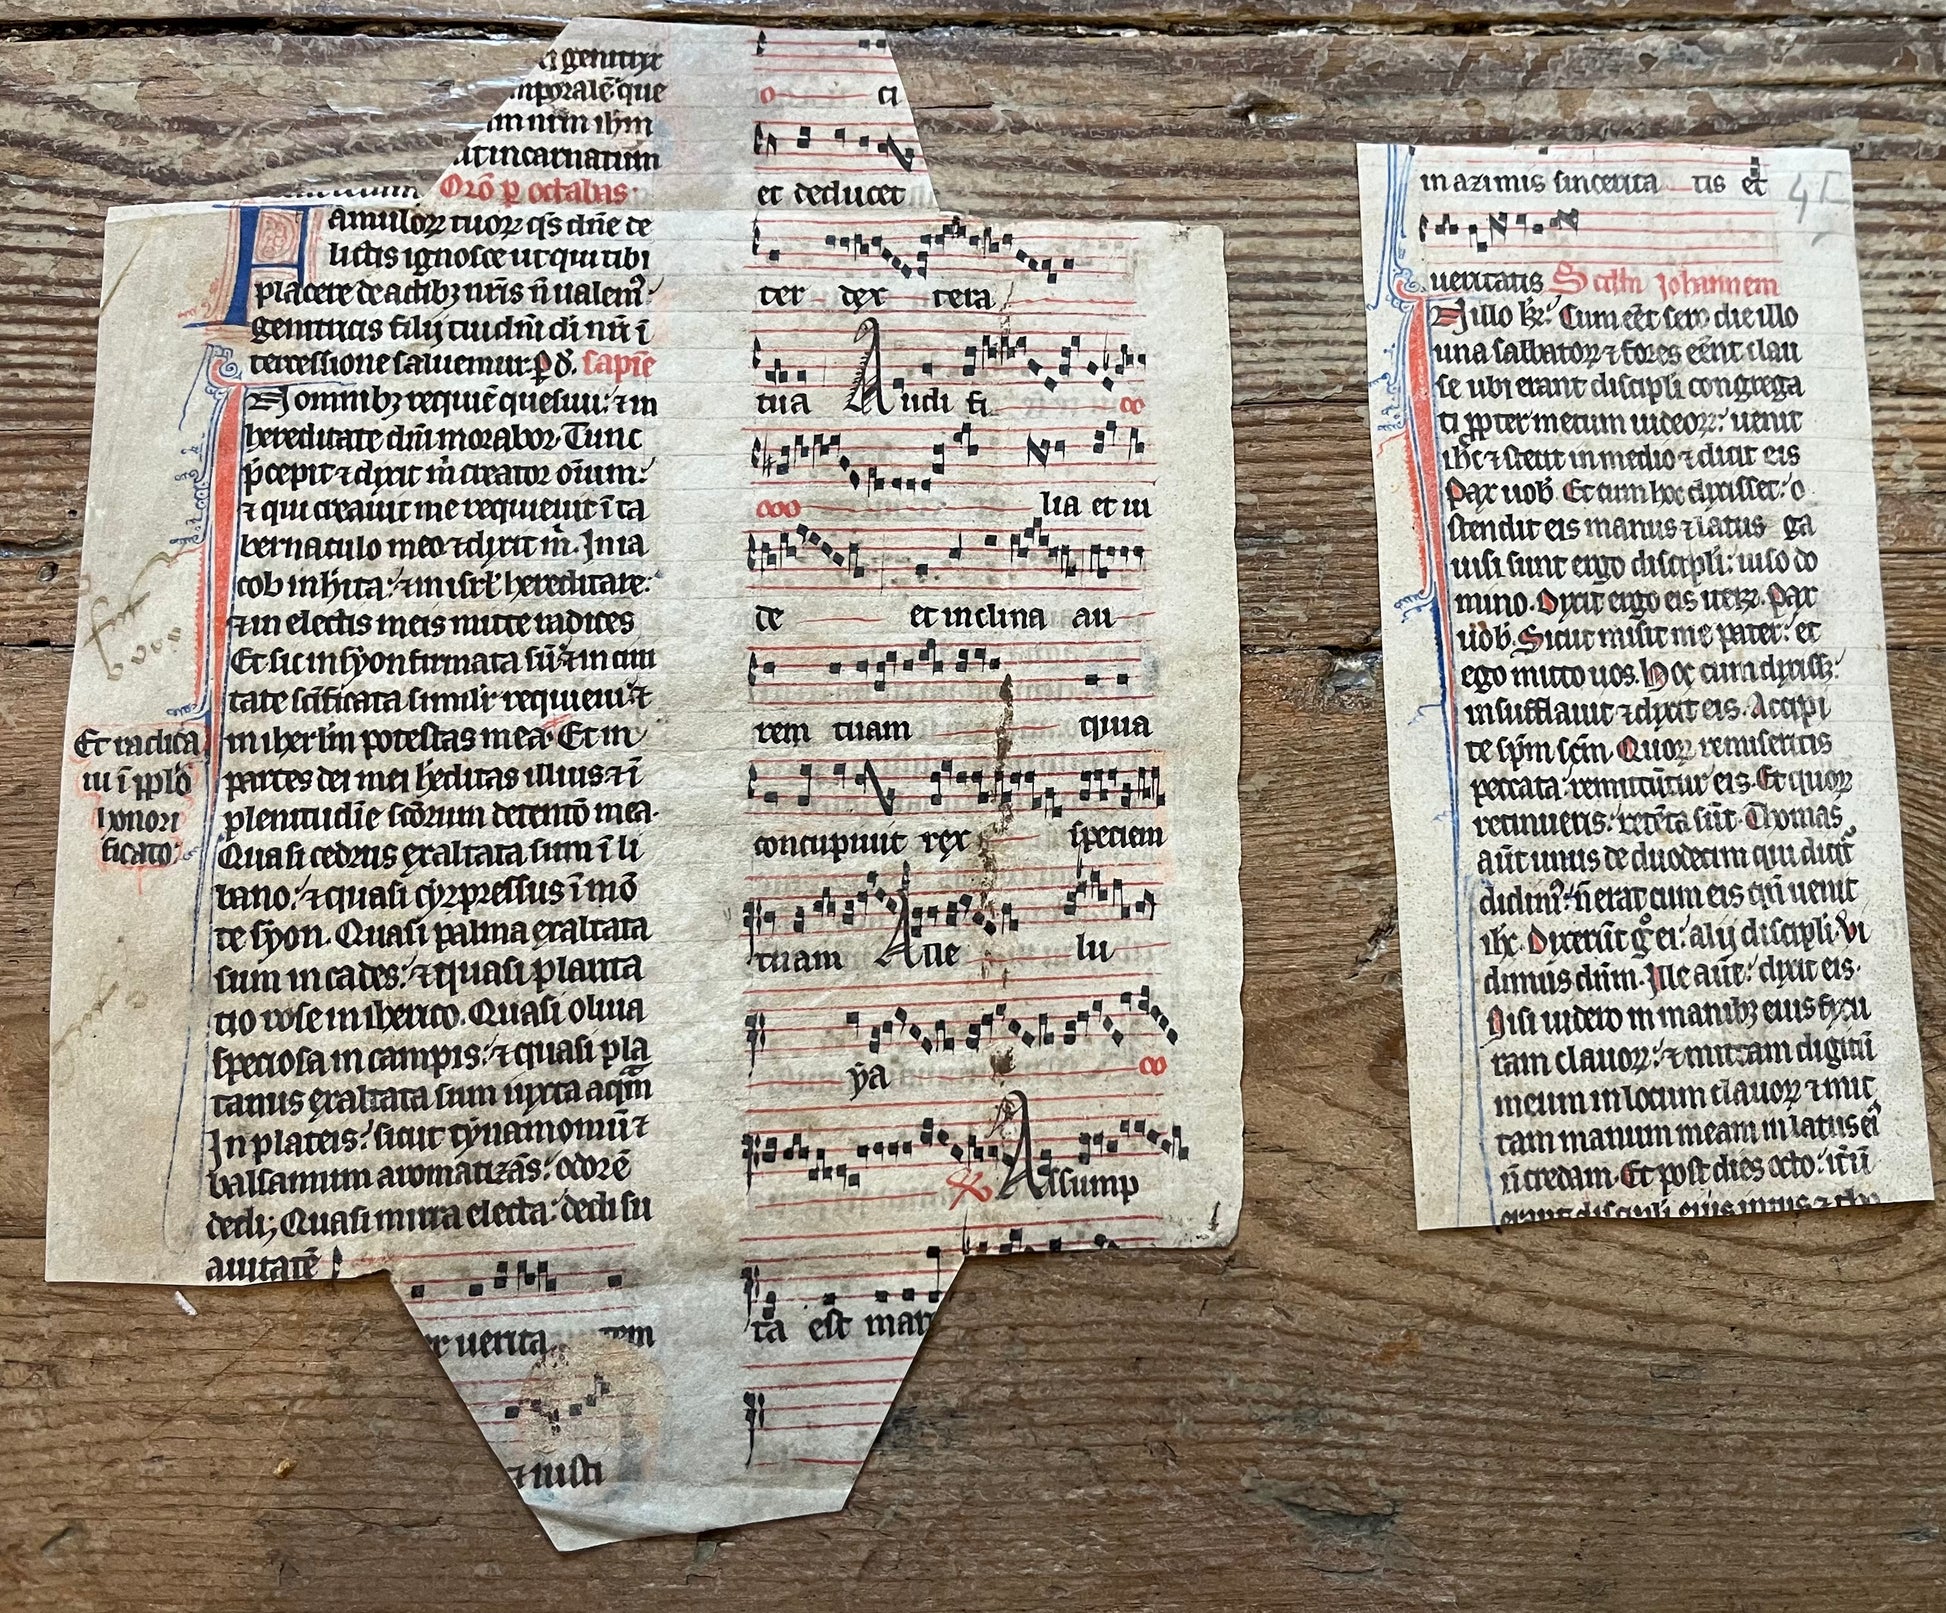 genitrix
mporalẽ que
um nr̃m ihm̃
ut incarnatum
Orõ p octabas
Famulorꝝ tuorꝝ qs̃ dñe de
lictis ignosce ut qui tibi
placere de actibꝫ nr̃is ñ valem᷒
genitricis filij tui dñi di nr̃i ĩ
tercessione saluemur. P d. sapiẽ
In omnibꝫ requiẽ quesiui: ⁊ in
hereditate dñi morabor. Tunc
p̃cepit ⁊ dixit m̃ creator oĩum:
⁊ qui creauit me requieuit ĩ ta
bernaculo meo ⁊ dixit m̃. In ia
cob inhĩta: ⁊ in isrl̃ hereditare:
⁊ in electis meis mitte radices
Et sic in syon firmata sũ: ⁊ in ciui
tate sc̃ificata simil'r requieui: ⁊
in iherl'm potestas mea. Et in
Et radica
ui ĩ pplõ
honori
ficato:
partes dei mei h̃editas illius: ⁊ ĩ
plenitudĩe sc̃orum detentõ mea.
Quasi cedrus exaltata sum ĩ li
bano: ⁊ quasi cypressus ĩ mõ
te syon. Quasi palma exaltata
sum in cades: ⁊ quasi planta
tio rose in iherico. Quasi oliua
speciosa in campis: ⁊ quasi pla
tanus exaltata sum iuxta aqm̃
In plateis: sicut cynamomũ ⁊
balsamum aromatizãs: odorẽ
dedi; Quasi mirra electa: dedi su
auitatẽ
r uerita tem
⁊ iusti
ci
et deducet
ter dex tera
tua Audi fi
lia et ui
de et inclina au
rem tuam quia
concupiuit rex speciem
tuam Alle lu
ya
Assump
ta est mari
in azimis sincerita tis et
41
ueritatis Scdm̃ Johannem
In illo t̃pr: Cum eẽt sero die illo
una sabbatorꝝ ⁊ fores eẽnt clau
se ubi erant discipli congrega
ti ppter metum iudeorꝝ: uenit
ihc̃ ⁊ stetit in medio ⁊ dicit eis
Pax uob'. Et cum hoc dixisset: o
stendit eis manus ⁊ latus ga
uisi sunt ergo discipli: uiso do
mino. Dixit ergo eis iterꝝ. Pax
uob'. Sicut misit me pater: et
ego mitto uos. Hoc cum dixissꝫ:
insufflauit ⁊ dixit eis. Accipi
te sp̃m sc̃m. Quorꝝ remiseritis
peccata: remittũtur eis. Et quorꝝ
retinueritis: retẽta sũt. Thomas
aũt unus de duodecim qui dicit᷑
didim᷒: ñ erat cum eis qñ uenit
ihc. Dixerũt g̊ ei: alij discipli. Vi
dimus dñm. Ille aũt: dixit eis.
Nisi uidero in manibꝫ eius fixu
ram clauorꝝ: ⁊ mittam digitũ
meum in locum clauorꝝ ⁊ mit
tam manum meam in latus ei᷒
ñ credam. Et post dies octo: itũ
erant discipuli eius intus ⁊ tho